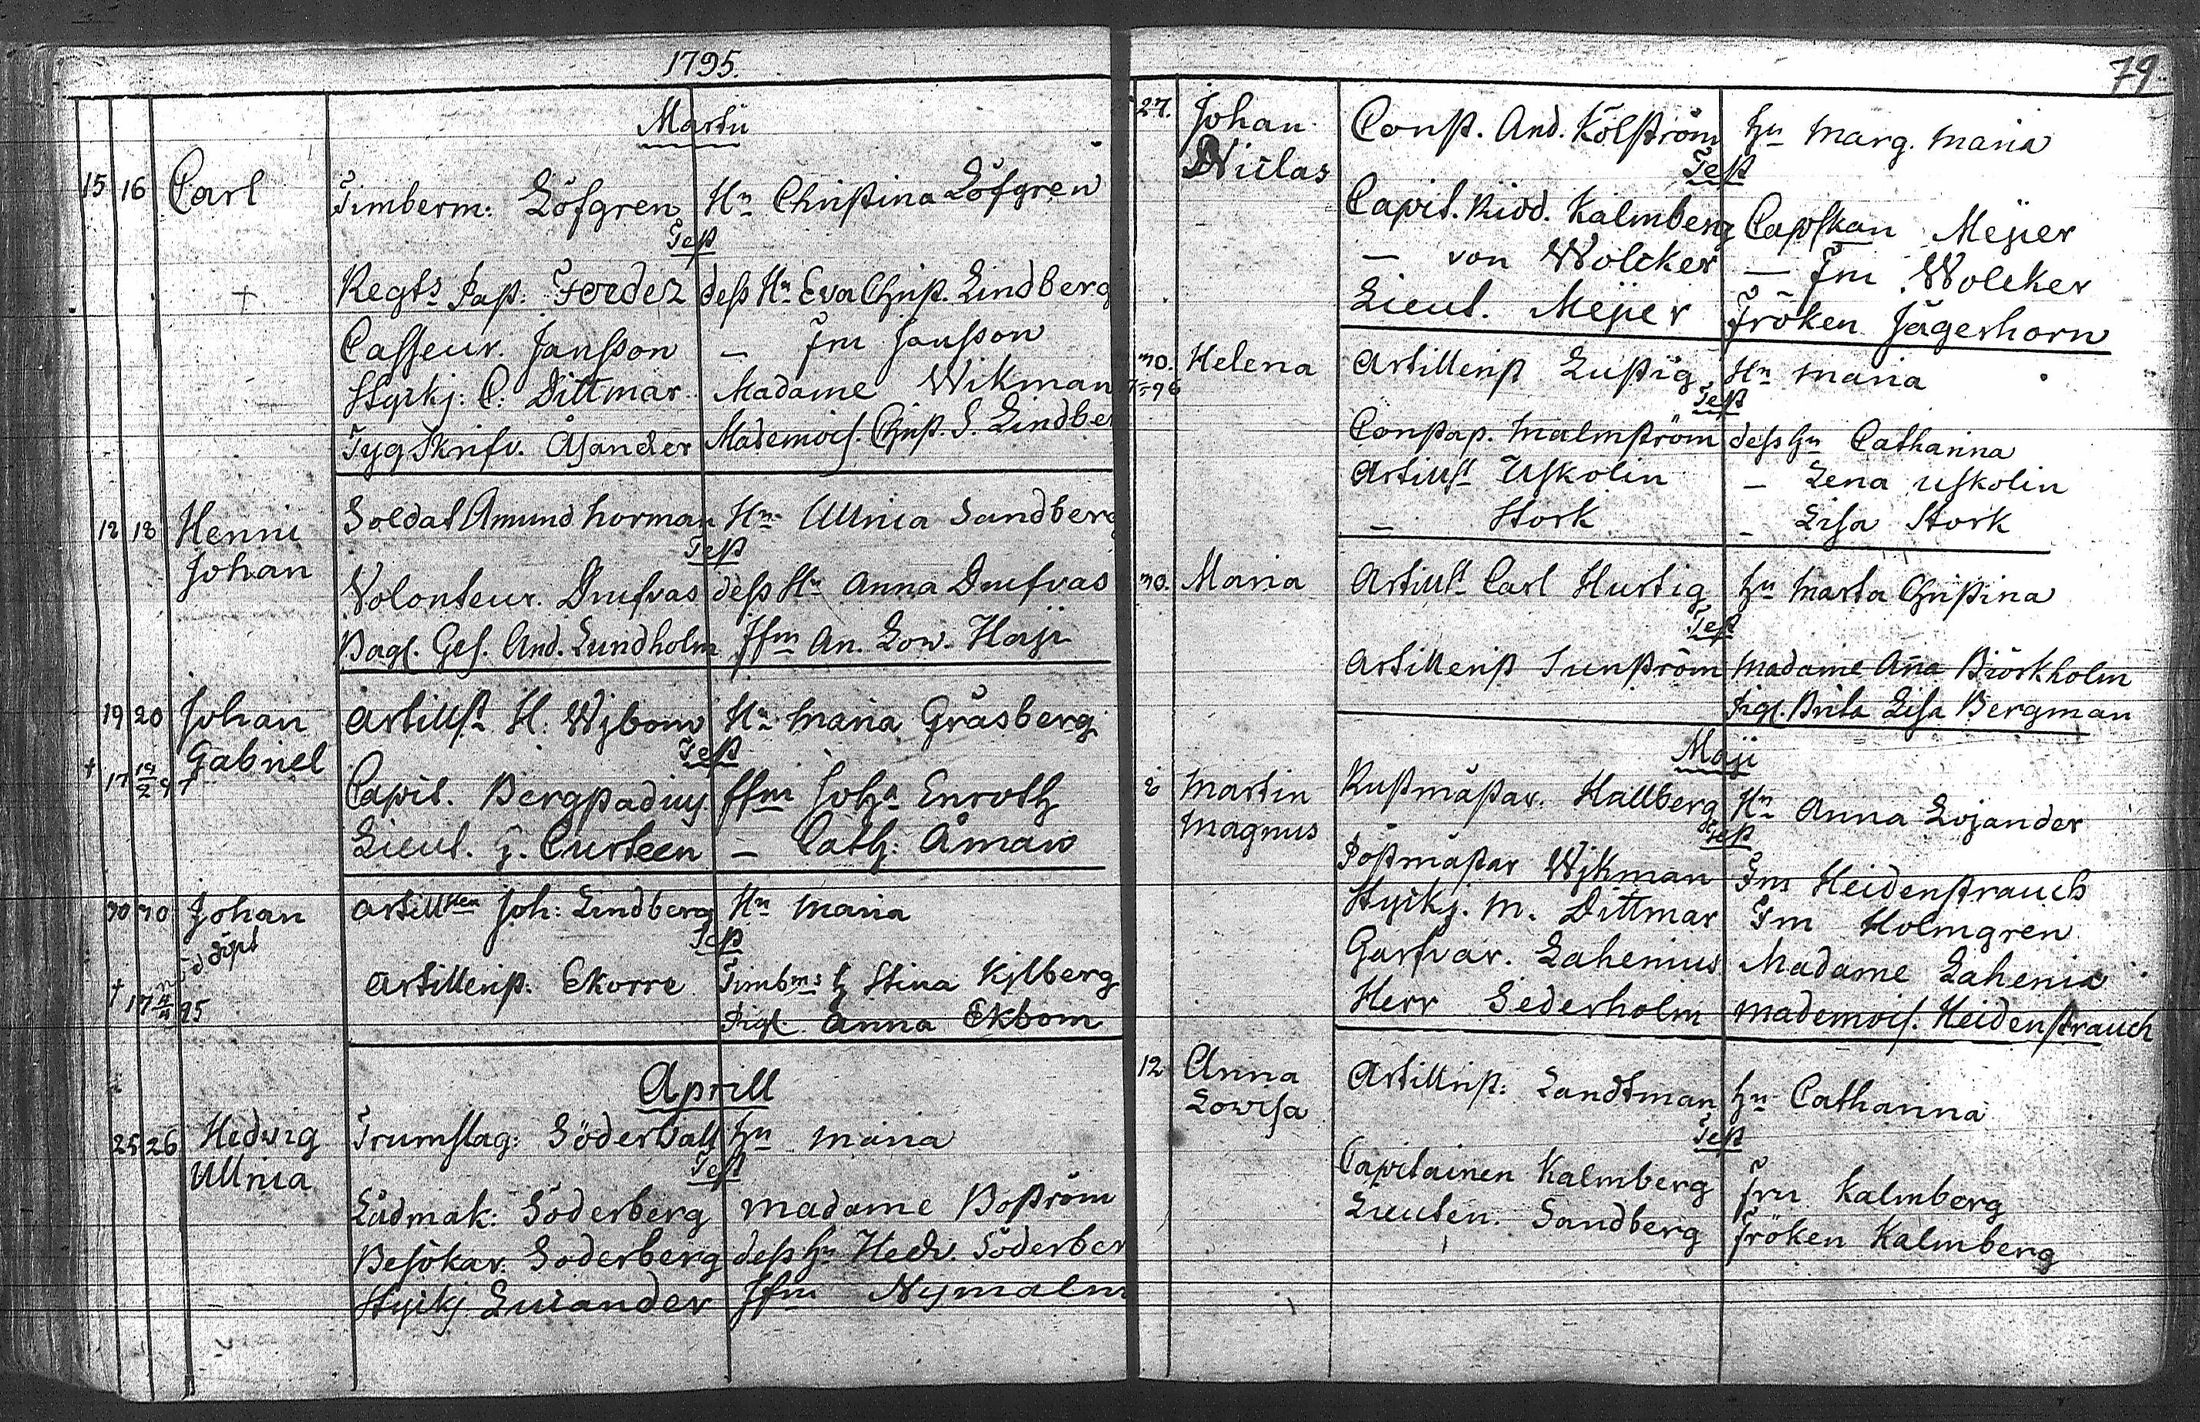 1795.
Martii
15 16 Carl Timberm: Löfgren Hu Christina Löfgren
Test
Regts Past: Tordez dess Hu Eva Christ. Lindberg
Casseur. Jansson — Fru Jansson
Styrkj: C: Dittmar Madame Wikman
TygSkrifv. Åsander Mademois. Christ. S. Lindber
12 18 Henric Soldat Amund Norman Hu Ullrica Sandberg
Johan Test
Volonteur. Drufvas dess Hu Anna Drufvas
Bag. Ges. And. Lundholm Jfru An. Low. Haji
19 20 Johan Artillst H. Wjbom Hu Maria Gräsberg
Gabriel Test
† 17 14/2 97
Capit. Bergstadius Jfru Joha Enroth
Lieut. G. Curteen — Cath: Åman
30 30 Johan Artill Joh: Lindberg Hu Maria
Test
Artillerist: Ekorre Timbms h Stina Kjlberg
† 17 4/4 95
Pig. Anna Ekbom
Aprill
25 26 Hedvig Trumslag: Södervall hu Maria
Ullrica Test
Lådmak: Söderberg Madame Boström
Besökar. Söderberg dess hu Hedv. Söderber
Styrkj Luiander Jfru Nymalm
79.
27. Johan Const. And. Kölström hu Marg. Maria
Niclas Test
Capit. Ridd. Kalmberg Capskan Mejier
— von Wolcker — Fru Wolcker
Lieut. Mejier Fröken Jägerhorn
30. Helena Artillerist Lustig Hu Maria
Test
Constap. Malmström dess hu Catharina
Artillst Uskolin — Lena Uskolin
— Stork — Lisa Stork
30. Maria Artillst Carl Hurtig hu Marta Christina
Test
Artillerist Sunström Madame Anna Biörkholm
Pig. Brita Lisa Bergman
Maji
2 Martin Rustmästar. Hallberg Hu Anna Lojander
Magnus Test
Postmästar Wjkman Fru Heidenstrauch
Styrkj. M. Dittmar Fru Holmgren
Garfvar. Lahenius Madame Lahenia
Herr Sederholm Mademois. Heidenstrauch
12 Anna Artillrist: Landtman hu Catharina
Lowisa Test
Capitainen Kalmberg Fru Kalmberg
Lieuten. Sandberg Fröken Kalmberg